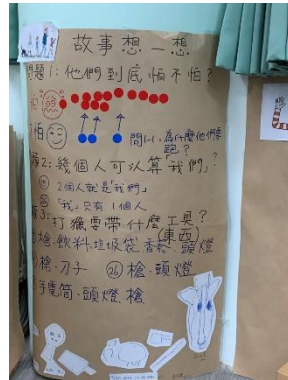 故事想一想
問題1:他們到底怕不怕?
怕
問1-1,為什麼他們要
跑?
題2:幾個人可以算「我們」?
2個人就是「我們」
「我」只有1個人
題3:打獵要帶什麼工具?
(東西)
槍、飲料、垃圾袋、香菸、頭燈
槍、刀子 26 槍、頭燈
手電筒、頭燈、槍